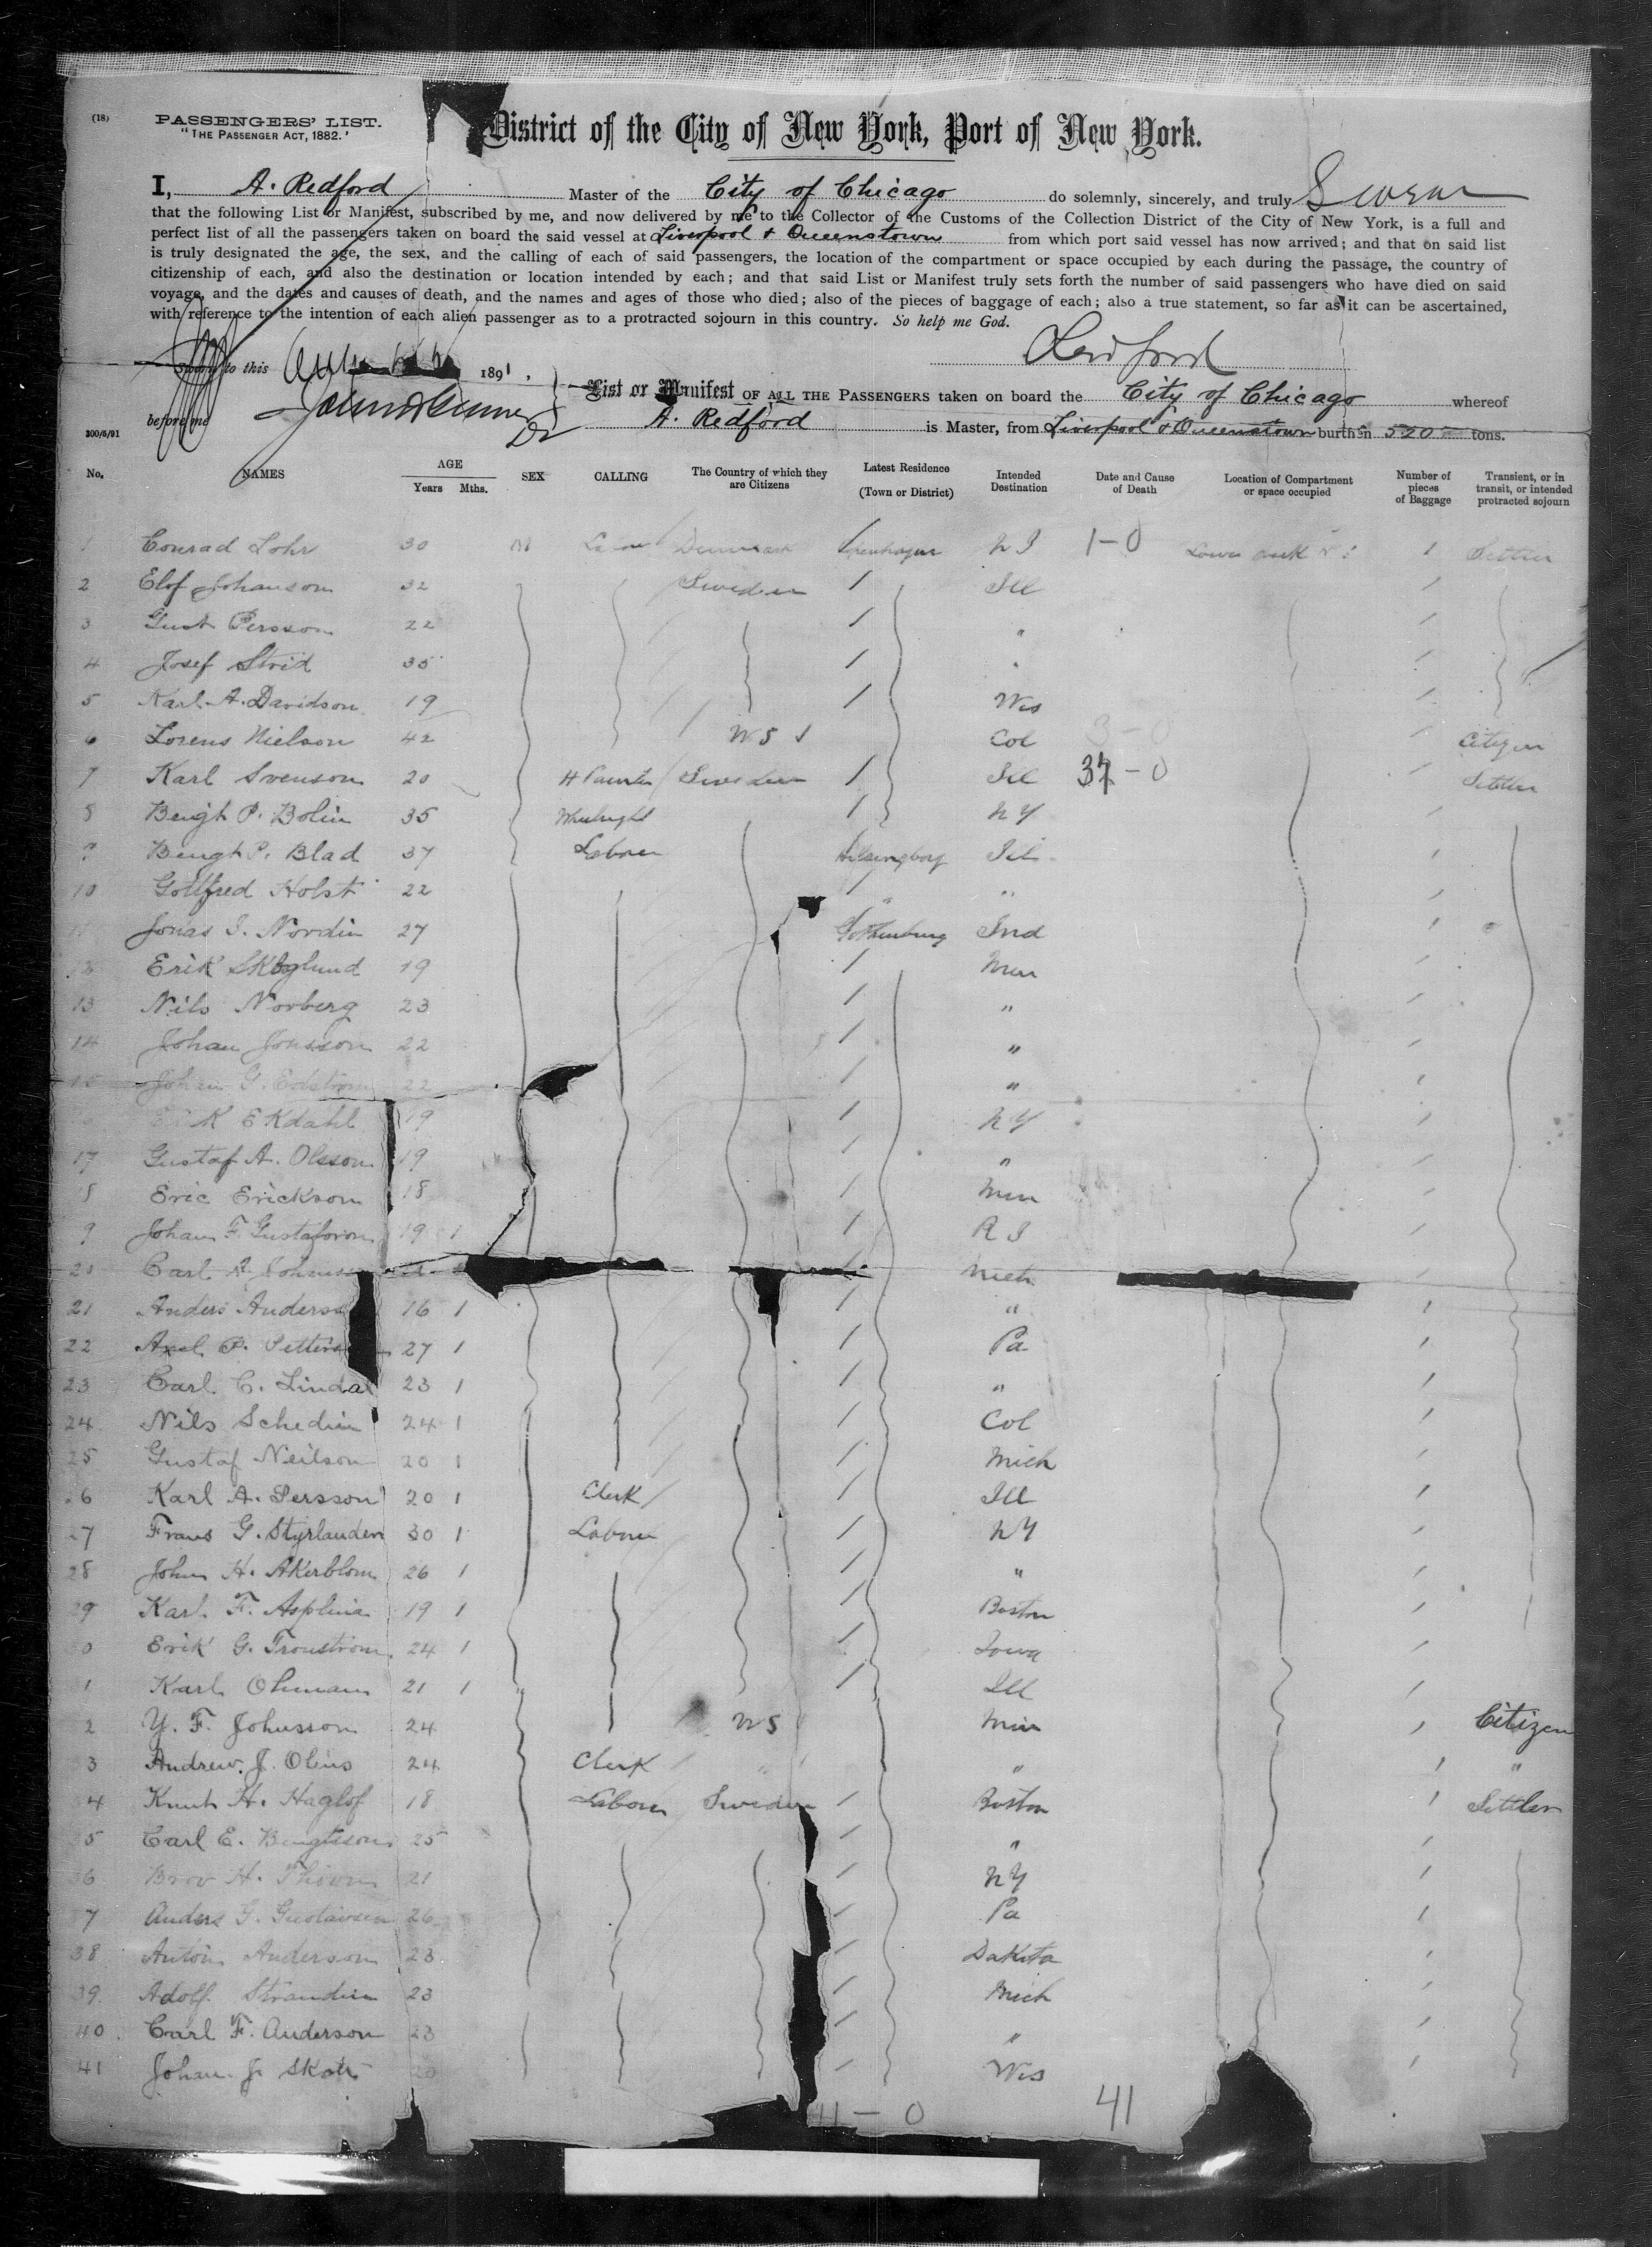 (18)
PASSENGERS' LIST.
"THE PASSENGER ACT, 1882.'
District of the City of New York, Port of New York.
I, A. Redford Master of the City of Chicago do solemnly, sincerely, and truly Swear
that the following List or Manifest, subscribed by me, and now delivered by me to the Collector of the Customs of the Collection District of the City of New York, is a full and
perfect list of all the passengers taken on board the said vessel at Liverpool & Queenstown from which port said vessel has now arrived; and that on said list
is truly designated the age, the sex, and the calling of each of said passengers, the location of the compartment or space occupied by each during the passage, the country of
citizenship of each, and also the destination or location intended by each; and that said List or Manifest truly sets forth the number of said passengers who have died on said
voyage, and the dates and causes of death, and the names and ages of those who died; also of the pieces of baggage of each; also a true statement, so far as it can be ascertained,
with reference to the intention of each alien passenger as to a protracted sojourn in this country. So help me God.
Redford
Sworn to this 1891,
List or Manifest OF ALL THE PASSENGERS taken on board the City of Chicago whereof
before me
300/5/91 A. Redford is Master, from Liverpool & Queenstown burthen 520 tons.
No. NAMES AGE Years Mths. SEX CALLING The Country of which they are Citizens Latest Residence (Town or District) Intended Destination Date and Cause of Death Location of Compartment or space occupied Number of pieces of Baggage Transient, or in transit, or intended protracted sojourn
1 Conrad Lohr 30 M Labour Denmark Copenhagen 1-0 1 Settler
2 Elof Johanson 32 Sweden / Ill /
3 Gust Persson 22 / " /
4 Josef Strid 35 / " /
5 Karl A. Davidson 19 / Wis /
6 Lorens Nielson 42 U S Col 3-0 / Citizen
7 Karl Svenson 20 H Painter Sweden / Ill 37-0 / Settler
8 Bengt P. Bolin 35 Wheelright / N Y /
9 Bengt P. Blad 37 Laborer Helsingborg Ill /
10 Gottfred Holst 22 / " /
Jonas I. Nordin 27 Gothenburg Ind /
12 Erik Skoglund 19 / Min /
13 Nils Norberg 23 / " /
14 Johan Jonsson 22 / " /
15 Johan G. Edstrom 22 / " /
Ekdahl 19 / N Y /
17 Gustaf A. Olsson 19 / " /
18 Eric Erickson 18 / Min /
9 Johan F. Gustafson 19 1 / R I /
20 Carl A Mich /
21 Anders Anderss 16 1 / " /
22 Axel P. 27 1 / Pa /
23 Carl C. Lindal 23 1 / " /
24 Nils Schedin 24 1 / Col /
25 Gustaf Neilson 20 1 / Mich /
26 Karl A. Persson 20 1 Clerk / Ill /
27 Frans G. Styrlander 30 1 Labour / N Y /
28 John H. Akerblom 26 1 / " /
29 Karl F. 19 1 / Boston /
0 Erik G. Tronstrom 24 1 / Iowa /
1 Karl Ohman 21 1 / Ill /
2 Y. F. Johnsson 24 U S Min / Citizen
3 Andrew J. Olins 24 Clerk " " / "
4 Knut H. Haglof 18 Laborer Sweden / Boston / Settler
35 Carl E. Bengtsson 25 / " /
36 H. 21 / N Y /
7 Anders G. Gustavsen 26 / Pa /
38 Anton Anderson 23 / Dakota /
39 Adolf Strandin 23 / Mich /
40 Carl F. Anderson 23 / " /
41 Johan J. 20 / Wis /
11-0 41